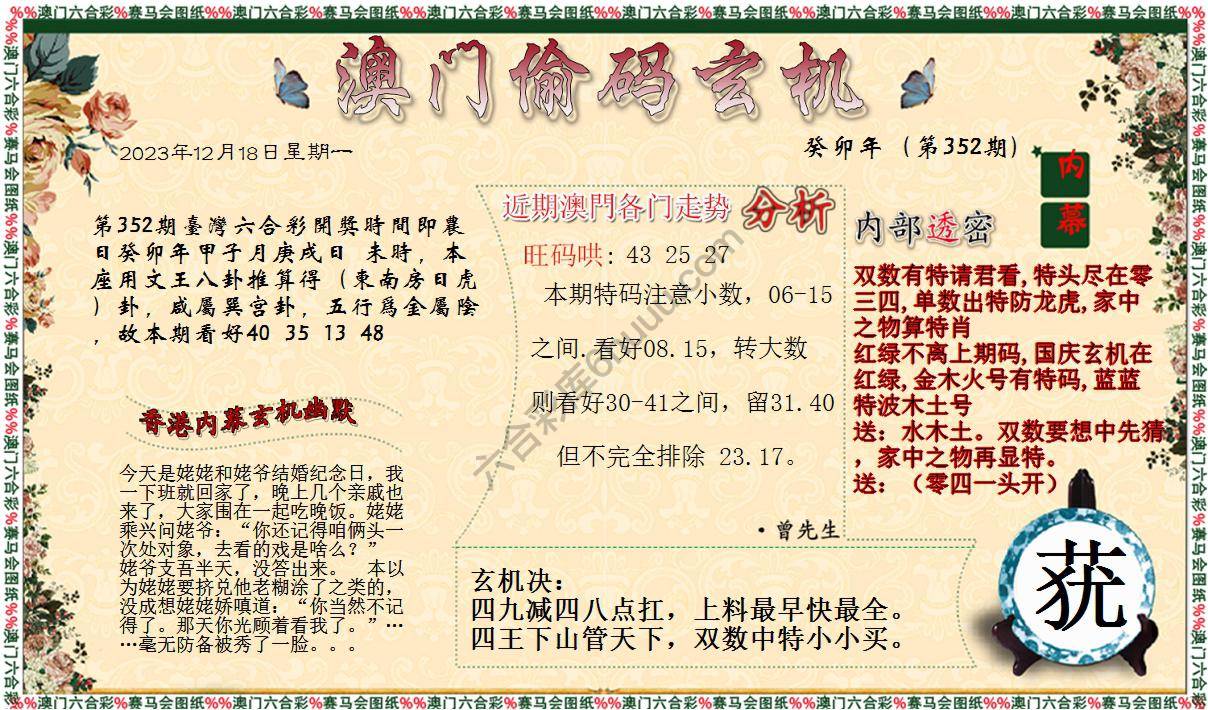 %%澳门六合彩%赛马会图纸%%澳门六合彩%赛马会图纸%%澳门六合彩%赛马会图纸%%澳门六合彩%赛马会图纸%%澳门六合彩%赛马会图纸%%澳门六合彩%赛马会图纸
澳门偷码玄机
2023年12月18日星期一
癸卯年（第352期）
内
幕
第352期臺灣六合彩開獎時間即農
日癸卯年甲子月庚戌日 未時，本
座用文王八卦推算得（東南房日虎
）卦，咸屬巽宫卦，五行爲金屬陰
，故本期看好40 35 13 48
香港内幕玄机幽默
今天是姥姥和姥爷结婚纪念日，我
一下班就回家了，晚上几个亲戚也
来了，大家围在一起吃晚饭。姥姥
乘兴问姥爷：“你还记得咱俩头一
次处对象，去看的戏是啥么？”
姥爷支吾半天，没答出来。 本以
为姥姥要挤兑他老糊涂了之类的，
没成想姥姥娇嗔道：“你当然不记
得了。那天你光顾着看我了。”…
…毫无防备被秀了一脸。。。
近期澳門各门走势 分析
旺码哄: 43 25 27
本期特码注意小数，06-15
之间.看好08.15，转大数
则看好30-41之间，留31.40
但不完全排除 23.17。
·曾先生
内部透密
双数有特请君看,特头尽在零
三四,单数出特防龙虎,家中
之物算特肖
红绿不离上期码,国庆玄机在
红绿,金木火号有特码,蓝蓝
特波木土号
送：水木土。双数要想中先猜
，家中之物再显特。
送：（零四一头开）
玄机决：
四九减四八点扛，上料最早快最全。
四王下山管天下，双数中特小小买。